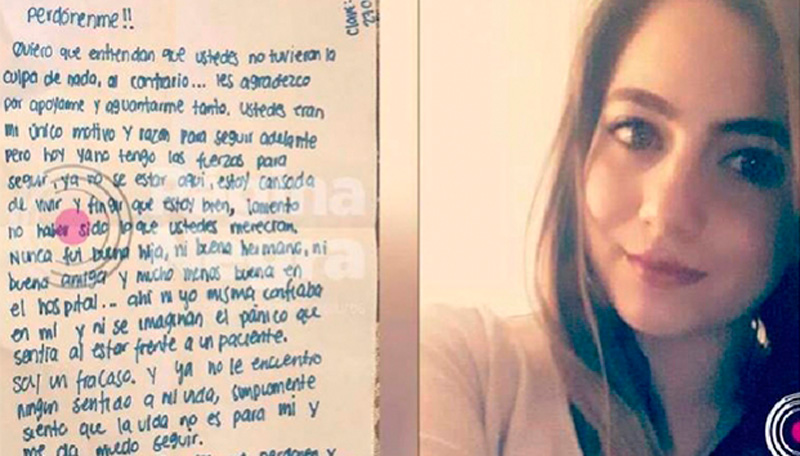 Perdónenme!!
Clave:
Quiero que entiendan que ustedes no tuvieron la
culpa de nada, al contrario... les agradezco
por apoyarme y aguantarme tanto. Ustedes eran
mi único motivo y razón para seguir adelante
pero hoy ya no tengo las fuerzas para
seguir, ya no se estar aqui, estoy cansada
de vivir y fingir que estoy bien, lamento
no haber sido lo que ustedes merecían.
Nunca fui buena hija, ni buena hermana, ni
buena amiga y mucho menos buena en
el hospital... ahí ni yo misma confiaba
en mí y ni se imaginan el pánico que
sentía al estar frente a un paciente.
Soy un fracaso. Y ya no le encuentro
ningún sentido a mi vida, simplemente
siento que la vida no es para mi y
me da miedo seguir.